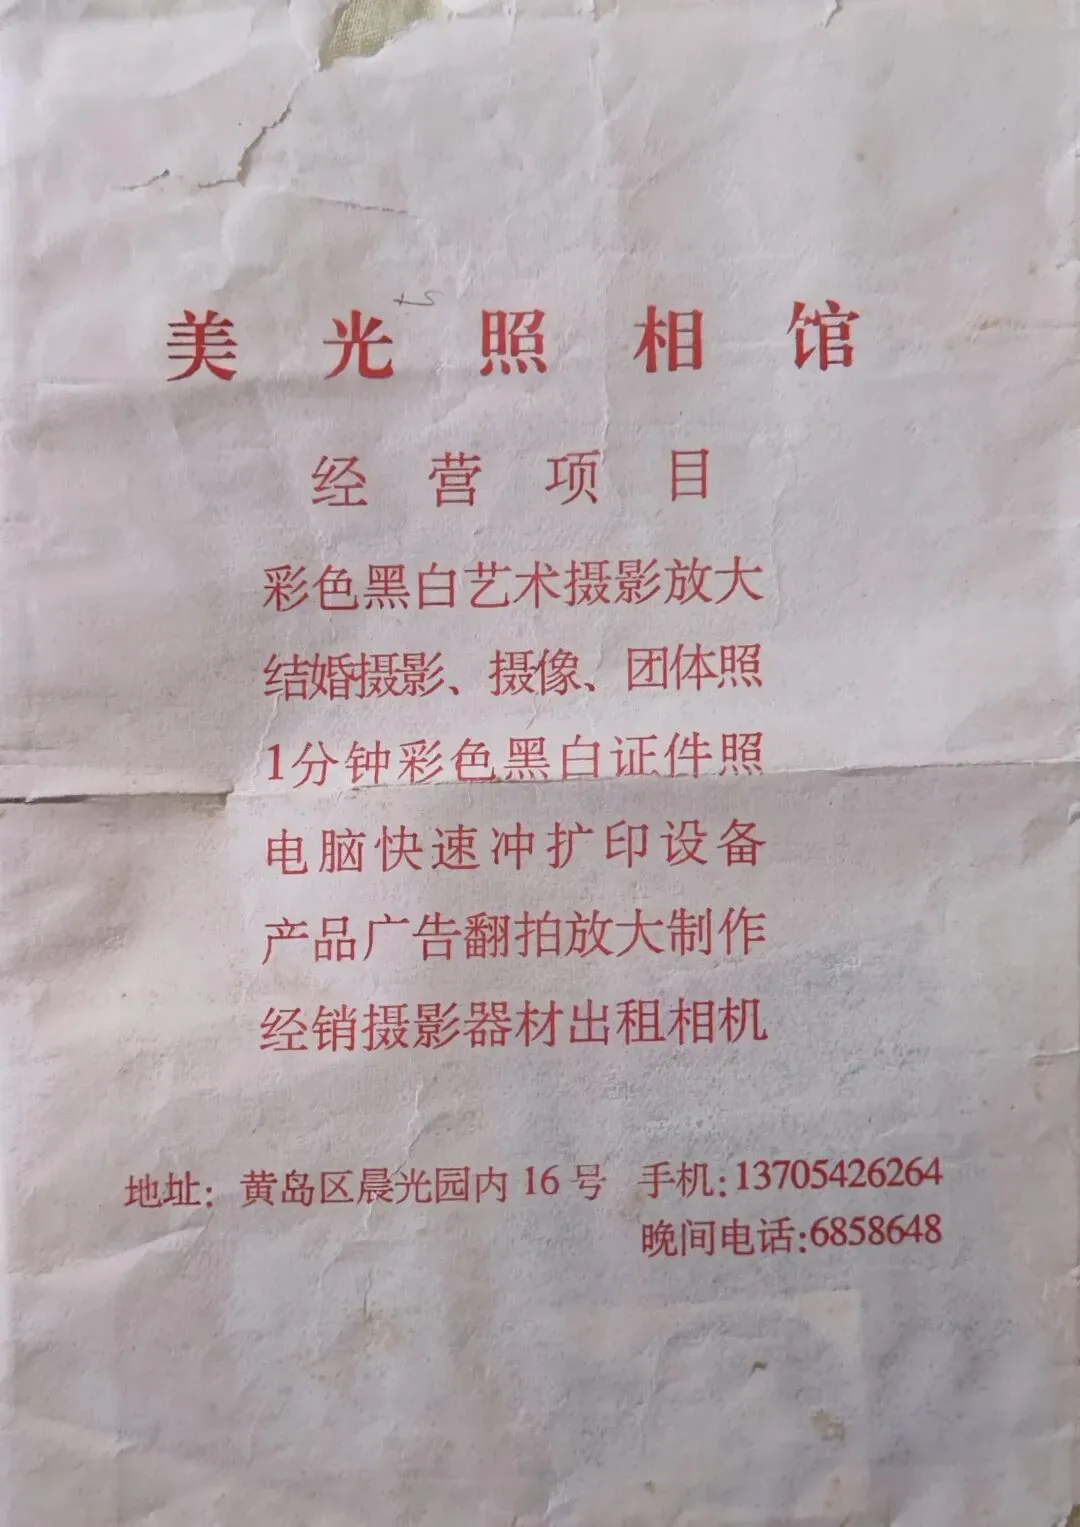 美光照相馆
经营项目
彩色黑白艺术摄影放大
结婚摄影、摄像、团体照
1分钟彩色黑白证件照
电脑快速冲扩印设备
产品广告翻拍放大制作
经销摄影器材出租相机
地址：黄岛区晨光园内16号 手机:13705426264
晚间电话:6858648